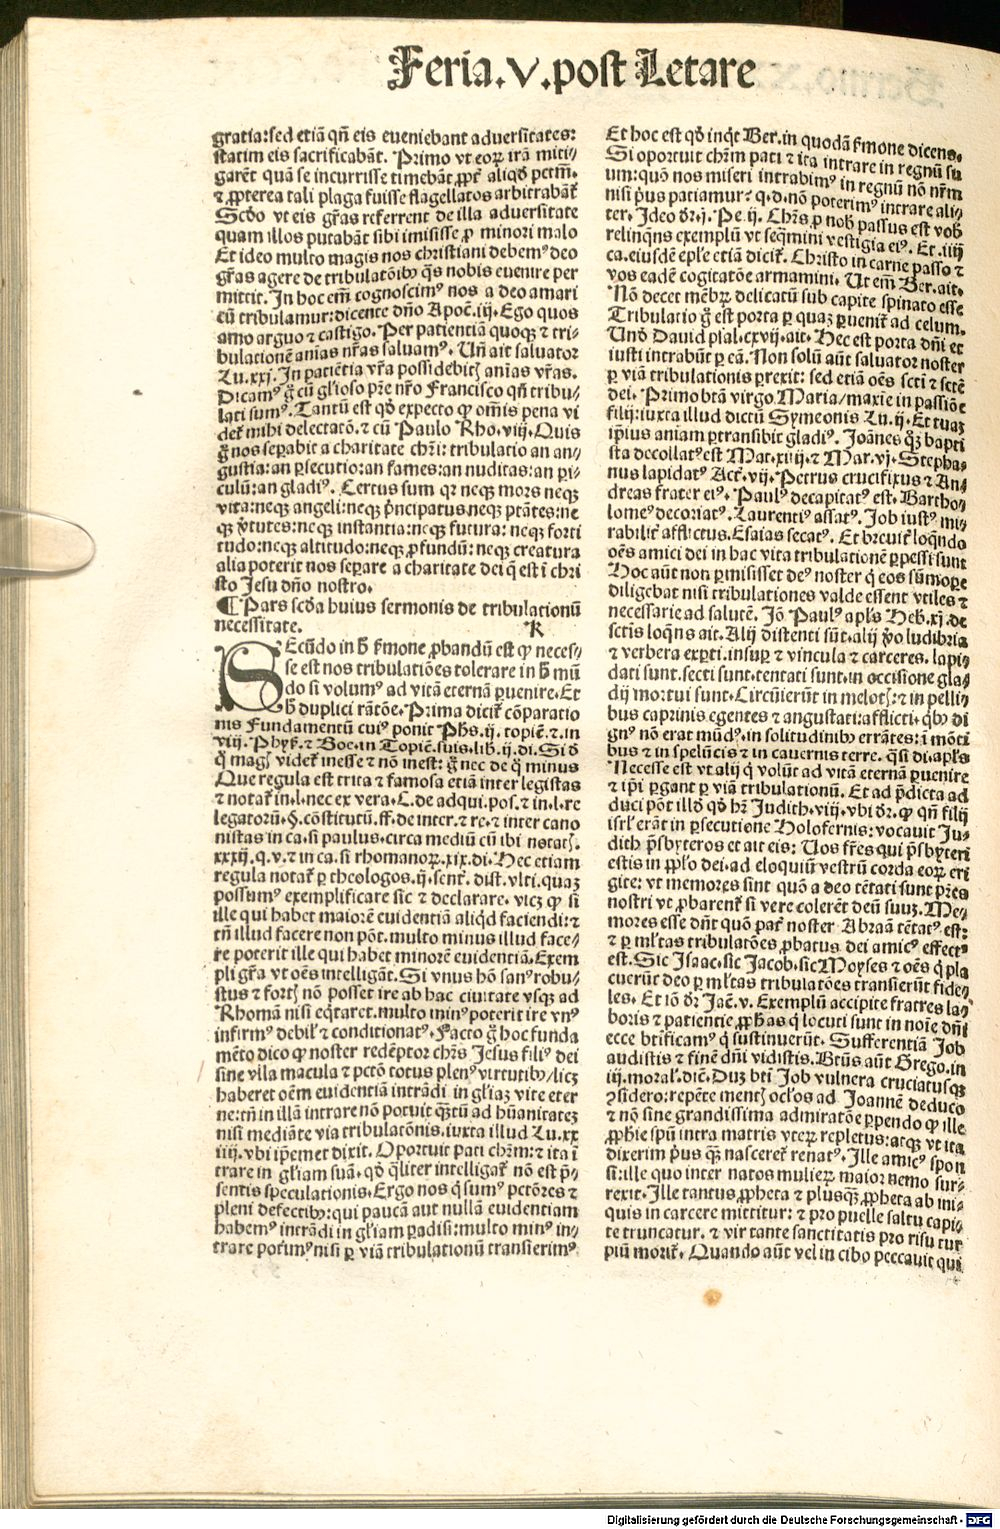 Feria.V.post Letare
gratia:sed etiā qn̄ eis eueniebant aduersitates:
statim eis sacrificabāt. Primo vt eoꝝ irā miti⸗
garēt quā se incurrisse timebāt ꝓpt̄ aliqd̄ pctm̄.
⁊ ꝓpterea tali plaga fuisse flagellatos arbitrabāt̄
Scd̄o vt eis gr̄as referrent de illa aduersitate
quam illos putabāt sibi imisisse ꝓ minori malo
Et ideo multo magis nos christiani debemꝰ deo
gr̄as agere de tribulatōibꝰ q̄s nobis euenire per
mittit. In hoc em̄ cognoscimꝰ nos a deo amari
cū tribulamur:dicente dn̄o Apoc̄.iij. Ego quos
amo arguo ⁊ castigo. Per patientiā quoqꝫ ⁊ tri⸗
bulationē anīas nr̄as saluamꝰ. Un̄ ait saluator
Lu.xxj. In patiētia vr̄a possidebitꝭ anīas vr̄as.
Dicamꝰ ḡ cū gl̄ioso pr̄e nr̄o Francisco qn̄ tribu⸗
lati sumꝰ. Tantū est qd̄ expecto ꝙ om̄is pena vi
det̄ mihi delectatō. ⁊ cū Paulo Rho.viij. Quis
ḡ nos sepabit a charitate chr̄i: tribulatio an an⸗
gustia:an ꝑsecutio:an fames:an nuditas:an ꝑi⸗
culū:an gladiꝰ. Certus sum qꝛ neqꝫ mors neqꝫ
vita:neqꝫ angeli:neqꝫ p̄ncipatus neqꝫ ptātes:ne
qꝫ v̄tutes:neqꝫ instantia:neqꝫ futura: neqꝫ forti
tudo:neqꝫ altitudo:neqꝫ ꝓfundū: neqꝫ creatura
alia poterit nos seꝑare a charitate dei q̄ est ī chri
sto Jesu dn̄o nostro.
¶ Pars scd̄a huius sermonis de tribulationū
necessitate. K
SEcūdo in h̄ s̄mone ꝓbandū est ꝙ neces⸗
se est nos tribulatiōes tolerare in h̄ mū
do si volumꝰ ad vitā eternā ꝑuenire. Et
h̄ duplici rātōe. Prima dicit̄ cōparatio
nis Fundamentū cuiꝰ ponit Ph̄s.ij. topic̄. ⁊ in
viij. Phyſ. ⁊ Boe. in Topic̄. suis. lib.ij. di. Si id
q̄ magꝭ videt̄ inesse ⁊ nō inest: ḡ nec de q̄ minus
Que regula est trita ⁊ famosa etiā inter legistas
⁊ notat̄ in.l. nec ex vera. C. de adqui. pos. ⁊ in.l. re
legatorū. §. cōstitutū. ff. de inter. ⁊ re. ⁊ inter cano
nistas in ca. si paulus. circa mediū cū ibi notatꝭ.
xxxij. q. v. ⁊ in ca. si rhomanoꝝ. xix. di. Hec etiam
regula notat̄ ꝑ theologos. ij. sent̄. dist. vlti. quaꝫ
possumꝰ exemplificare sic ⁊ declarare. vicꝫ ꝙ si
ille qui habet maiorē euidentiā aliqd̄ faciendi: ⁊
tn̄ illud facere non pōt. multo minus illud face⸗
re poterit ille qui habet minorē euidentiā. Exem
pli gr̄a vt oēs intelligāt. Si vnus hō sanꝰ robu⸗
stus ⁊ fortꝭ nō posset ire ab hac ciuitate vsqꝫ ad
Rhomā nisi eq̄taret. multo minꝰ poterit ire vnꝰ
infirmꝰ debil̓ ⁊ conditionatꝰ. Facto ḡ hoc funda
mēto dico ꝙ noster redēptor chr̄s Jesus filiꝰ dei
sine vlla macula ⁊ pctō totus plenꝰ virtutibꝰ/licꝫ
haberet oēm euidentiā intrādi in gl̄iaꝫ vite eter
ne:tn̄ in illā intrare nō potuit q̄ꝫtū ad hūanitateꝫ
nisi mediāte via tribulatōnis. iuxta illud Lu.xx
iiij. vbi ip̄emet dixit. Oportuit pati chr̄m: ⁊ ita ī
trare in gl̄iam suā. qd̄ q̄liter intelligat̄ nō est p̄⸗
sentis speculationis. Ergo nos q̄ sumꝰ pctōres ⁊
pleni defectibꝰ: qui paucā aut nullā euidentiam
habemꝰ intrādi in gl̄iam paradisi: multo minꝰ in⸗
trare potimꝰ nisi ꝑ viā tribulationū transierimꝰ
Et hoc est qd̄ inq̄t Ber. in quodā s̄mone dicens.
Si oportuit chr̄m pati ⁊ ita intrare in regnū su
um: quō nos miseri intrabimꝰ in regnū nō nr̄m
nisi p̄us patiamur? q.d. nō poterimꝰ intrare ali⸗
ter. Ideo dr̄. j. Pe.ij. Chr̄s ꝓ nob̄ passus est vob̄
relinqn̄s exemplū vt seq̄mini vestigia eiꝰ. Et.iiij
ca. eiusdē ep̄le etiā dicit̄. Christo in carne passo ⁊
vos eadē cogitatōe armamini. Ut em̄ Ber. ait.
Nō decet mēbꝝ delicatū sub capite spinato esse
Tribulatio ḡ est porta ꝑ quaꝫ ꝑuenit̄ ad celum.
Und̄ Dauid psal. cxvij. ait. Hec est porta dn̄i et
iusti intrabūt ꝑ eā. Non solū aūt saluator noster
ꝑ viā tribulationis ꝑrexit: sed etiā oēs scti ⁊ sctē
dei. Primo btā virgo Maria/ maxie in passiōe
filij: iuxta illud dictū Symeonis Lu.ij. Et tuaꝫ
ip̄ius aniam ꝑtransibit gladiꝰ. Joānes qꝫ bapti
sta decollatꝰ est Mat.xiiij. ⁊ Mar.vj. Stepha⸗
nus lapidatꝰ Act̄.vij. Petrus crucifixus ⁊ An⸗
dreas frater eiꝰ. Paulꝰ decapitatꝰ est. Bartho⸗
lomeꝰ decoriatꝰ. Laurentiꝰ assatꝰ. Job iustꝰ mi⸗
rabilit̄ afflictus. Esaias secatꝰ. Et breuit̄ loqn̄do
oēs amici dei in hac vita tribulationē ꝑpessi sunt
Hoc aūt non ꝑmisisset deꝰ noster q̄ eos sūmope
diligebat nisi tribulationes valde essent vtiles ⁊
necessarie ad salutē. Jō Paulꝰ apl̄s Heb.xj. de
sctīs loqn̄s ait. Alij distenti sūt. alij v̄o ludibria
⁊ verbera exꝑti. insuꝑ ⁊ vincula ⁊ carceres. lapi⸗
dati sunt. secti sunt. tentati sunt. in occisione gla⸗
dij mortui sunt. Circūierūt in melotꝭ: ⁊ in pelli⸗
bus caprinis egentes ⁊ angustati: afflicti. qbꝰ di
gnꝰ nō erat mūdꝰ. in solitudinibꝰ errātes: ī mōti
bus ⁊ in spelūcis ⁊ in cauernis terre. q̄si di. apl̄s
Necesse est vt alij q̄ volūt ad vitā eternā ꝑuenire
⁊ ip̄i ꝑgant ꝑ viā tribulationū. Et ad p̄dicta ad
duci pōt illd̄ qd̄ hꝫ Judith.viij. vbi dr̄. ꝙ qn̄ filij
isrl̄ erāt in ꝑsecutione Holofernis: vocauit Ju⸗
dith p̄sbyteros et ait eis: Uos fr̄es qui p̄sbyteri
estis in ppl̄o dei. ad eloquiū vestrū corda eoꝝ eri
gite: vt memores sint quō a deo tētati sunt pr̄es
nostri vt ꝓbarent̄ si vere colerēt deū suuꝫ. Me⸗
mores esse dn̄t quō pat̄ noster Abraā tētatꝰ est:
⁊ ꝑ ml̓tas tribulatōes ꝓbatus dei amicꝰ effectꝰ
est. Sic Isaac. sic Jacob. sic Moyses ⁊ oēs q̄ pla
cuerūt deo ꝑ ml̓tas tribulatōes transierūt fide⸗
les. Et iō dr̄ Jac̄.v. Exemplū accipite fratres la⸗
boris ⁊ patientie ꝓphas q̄ locuti sunt in noīe dn̄i
ecce btificamꝰ q̄ sustinuerūt. Sufferentiā Job
audistis ⁊ finē dn̄i vidistis. Btūs aūt Grego. in
iij. moral. dic̄. Duꝫ bti Job vulnera cruciatusqꝫ
ꝯsidero: repēte mentꝭ ocl̓os ad Joannē deduco
⁊ nō sine grandissima admiratōe ꝑpendo ꝙ ille
ꝓphie spū intra matris vteꝝ repletus: atqꝫ vt ita
dixerim p̄us qꝫ nasceret̄ renatꝰ. Ille amicꝰ spon
si: ille quo inter natos mulieꝝ maior nemo sur⸗
rexit. Ille tantus ꝓpheta ⁊ plusqꝫ ꝓpheta ab ini⸗
quis in carcere mittitur: ⁊ pro puelle saltu capi⸗
te truncatur. ⁊ vir tante sanctitatis pro risu tur
piū morit̄. Quando aūt vel in cibo peccauit qui
Digitalisierung gefördert durch die Deutsche Forschungsgemeinschaft - DFG